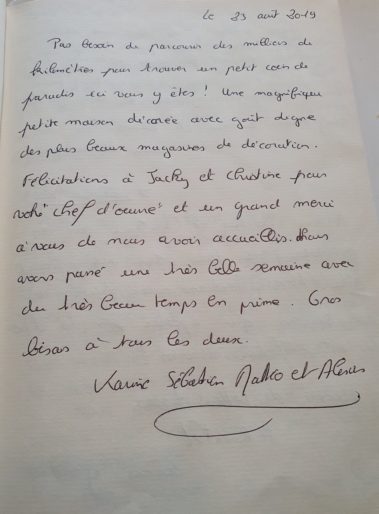 Le 23 août 2019
Pas besoin de parcourir des milliers de
kilomètres pour trouver un petit coin de
paradis ici vous y êtes ! Une magnifique
petite maison décorée avec goût digne
des plus beaux magasines de décoration.
Félicitations à Jacky et Christine pour
votre "chef d'œuvre" et un grand merci
à vous de nous avoir accueillis. Nous
avons passé une très belle semaine avec
du très beau temps en prime. Gros
bisous à tous les deux.
Karine Sébastien Mattéo et Alexis